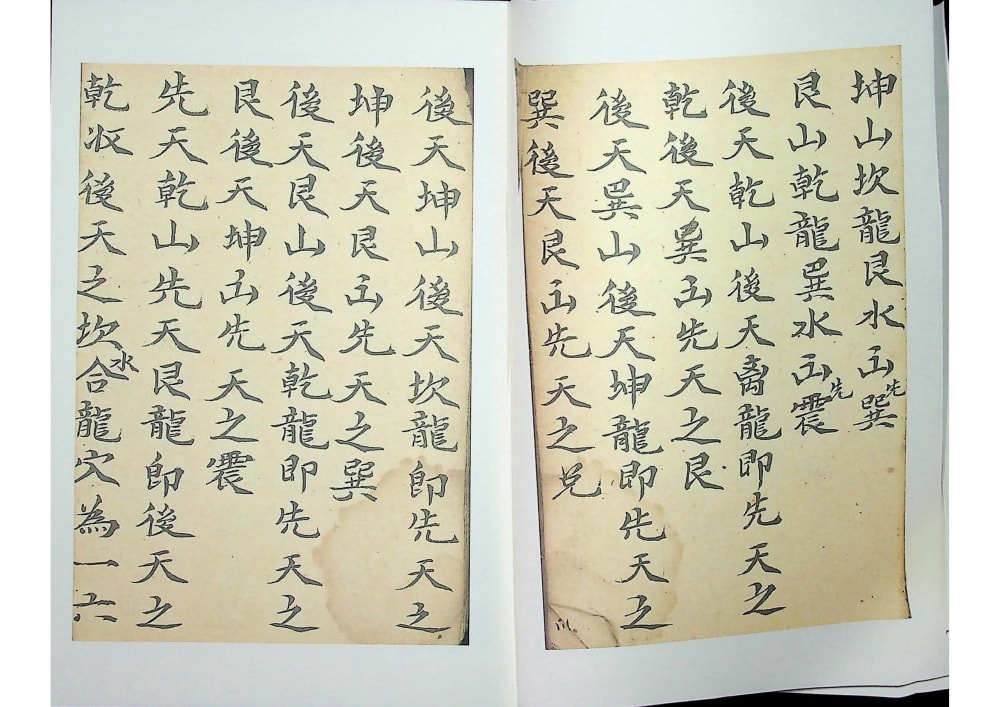 坤山坎龍艮水正先巽
艮山乾龍巽水正先震
後天乾山後天離龍即先天之
乾後天巽正先天之艮
後天巽山後天坤龍即先天之
巽後天艮正先天之兌
後天坤山後天坎龍即先天之
坤後天艮正先天之巽
後天艮山後天乾龍即先天之
艮後天坤正先天之震
先天乾山先天艮龍即後天之
乾収後天之坎水合龍穴為一六